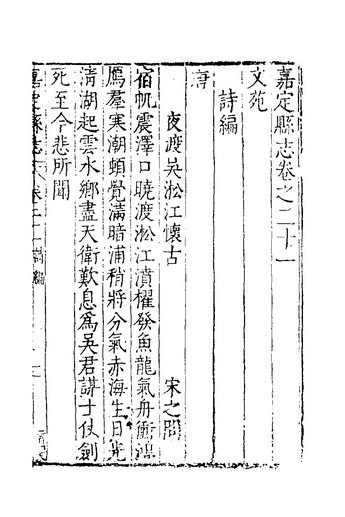 嘉定縣志卷之二十一
文苑
詩編
唐
夜渡吳淞江懷古 宋之問
宿帆震澤口曉渡淞江濆櫂發魚龍氣舟衝鴻
鴈羣寒潮頓覺滿暗浦稍將分氣赤海生日光
清湖起雲水鄉盡天衛歎息爲吳君謀士仗劍
死至今悲所聞
嘉定縣志 卷二十一 詩編 一